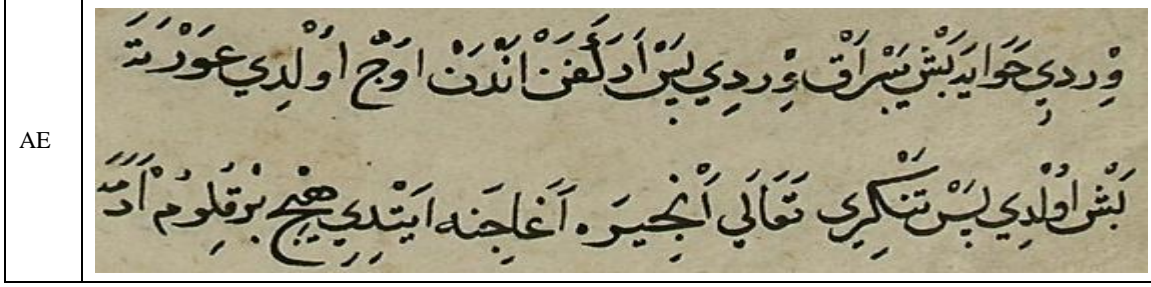 AE
وِردِي حَوَايَه بَشْ يَبْرَاقْ وِردِي پَسْ اَرَ كَفَنْ اَنْدَنْ اوُچْ اوُلْدِي عَوْرَتَه
بَشْ اوُلْدِي پَسْ تَنْكرِي تَعَالَي اَنْجِيرَه اَغَاجِنَه ايَتْدِي هِيچ بِرْ قُلُومْ اَدَمَه